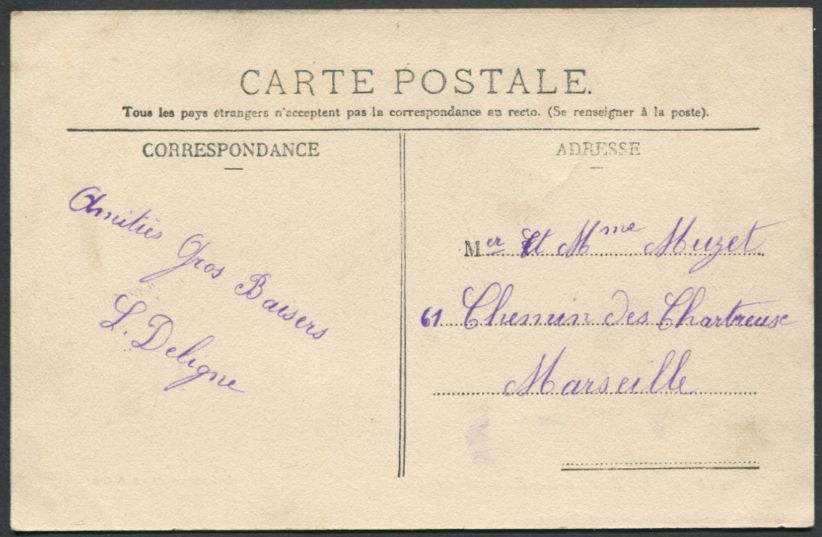 CARTE POSTALE.
Tous les pays étrangers n'acceptent pas la correspondance au recto. (Se renseigner à la poste).
CORRESPONDANCE
Amitiés Gros Baisers
L. Deligne
ADRESSE
Mer et Mme Muzet
61 Chemin des Chartreuse
Marseille